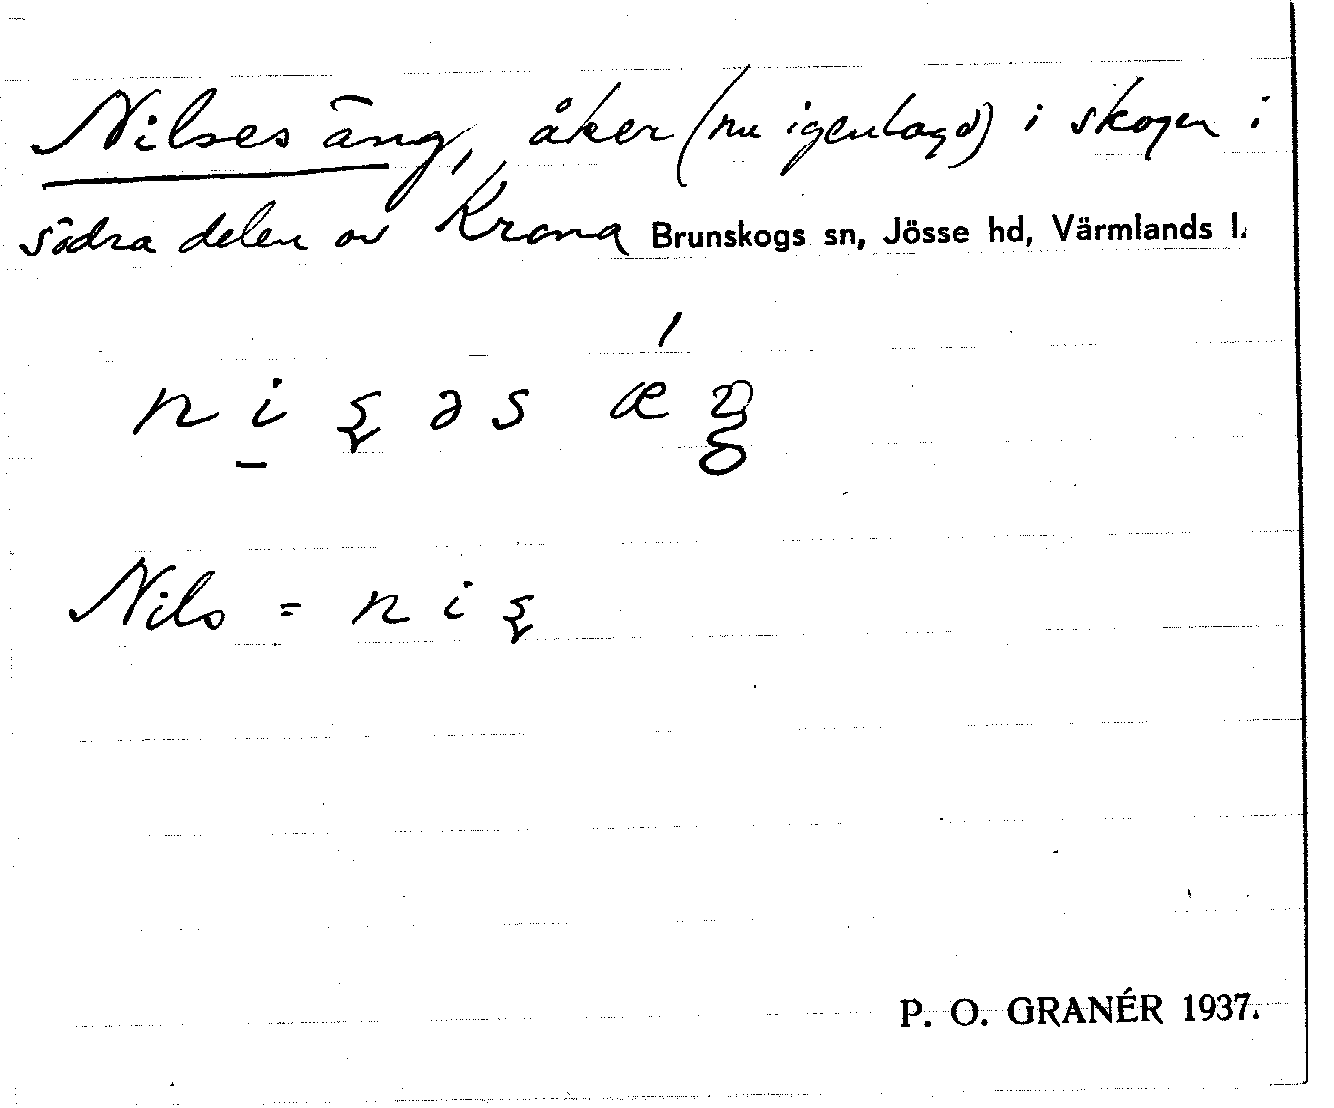 Nilses äng, åker (nu igenlagd) i skogen i
södra delen av Krona Brunskogs sn, Jösse hd, Värmlands l.
n i̱ ʂ ə s ǽ ŋ
Nils = n i ʂ
P. O. GRANÉR 1937.